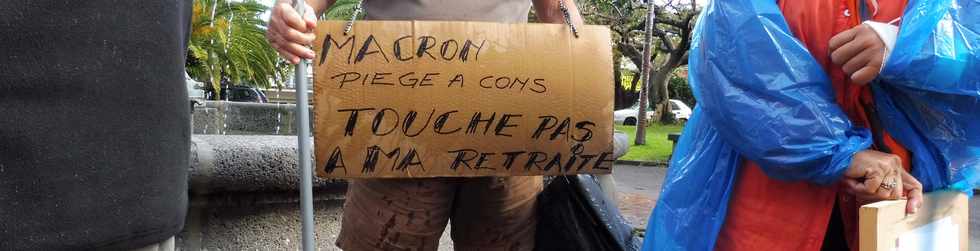 MACRON
PIEGE A CONS
TOUCHE PAS
A MA RETRAITE